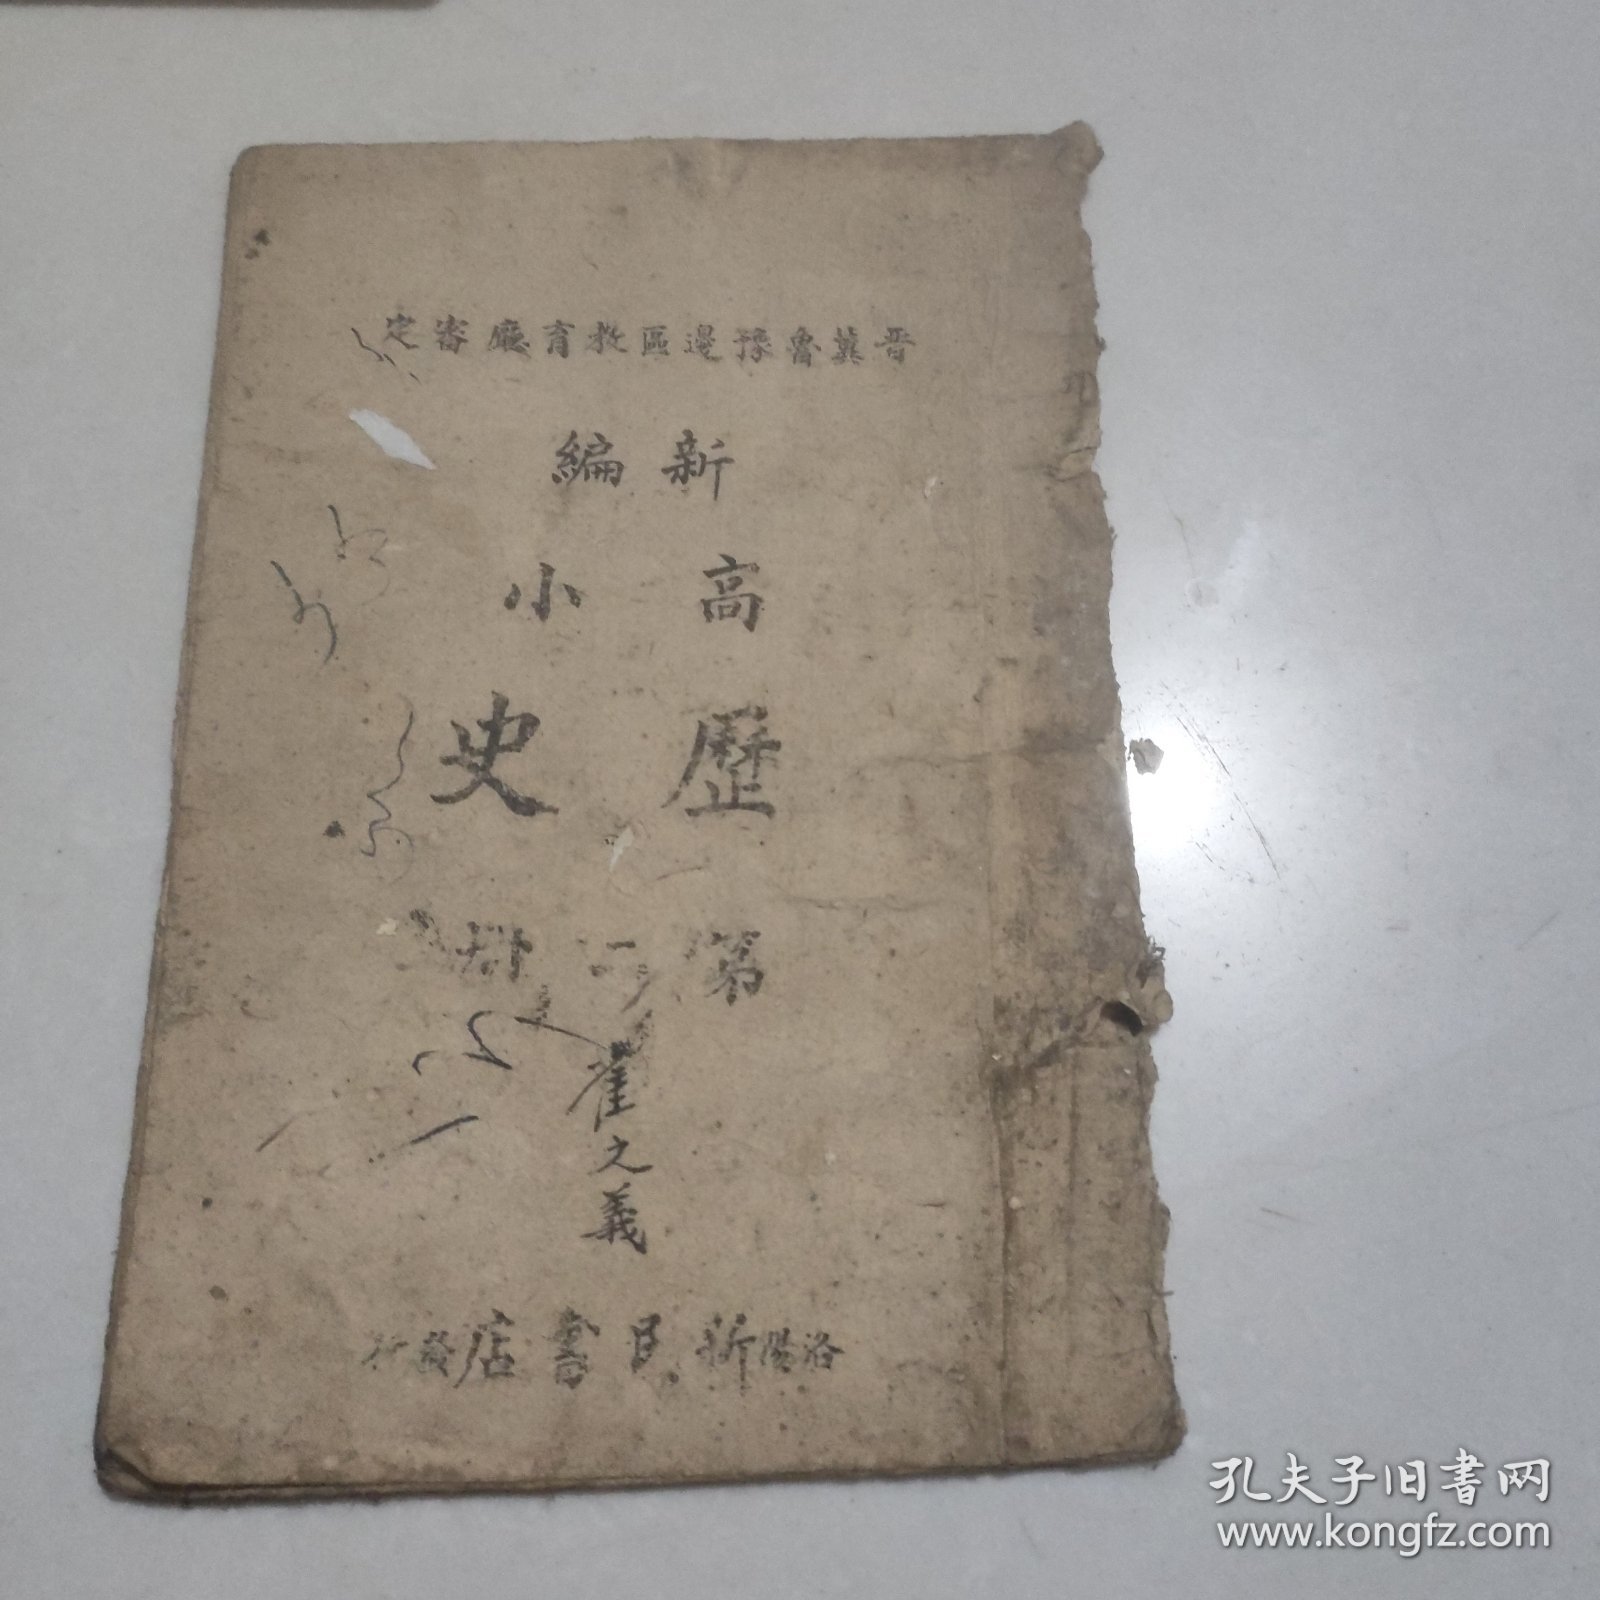 晋冀魯豫邊區教育廳審定
新編
高小
歷史
第二册
崔之義
洛陽新民書店發行
孔夫子旧书网
www.kongfz.com